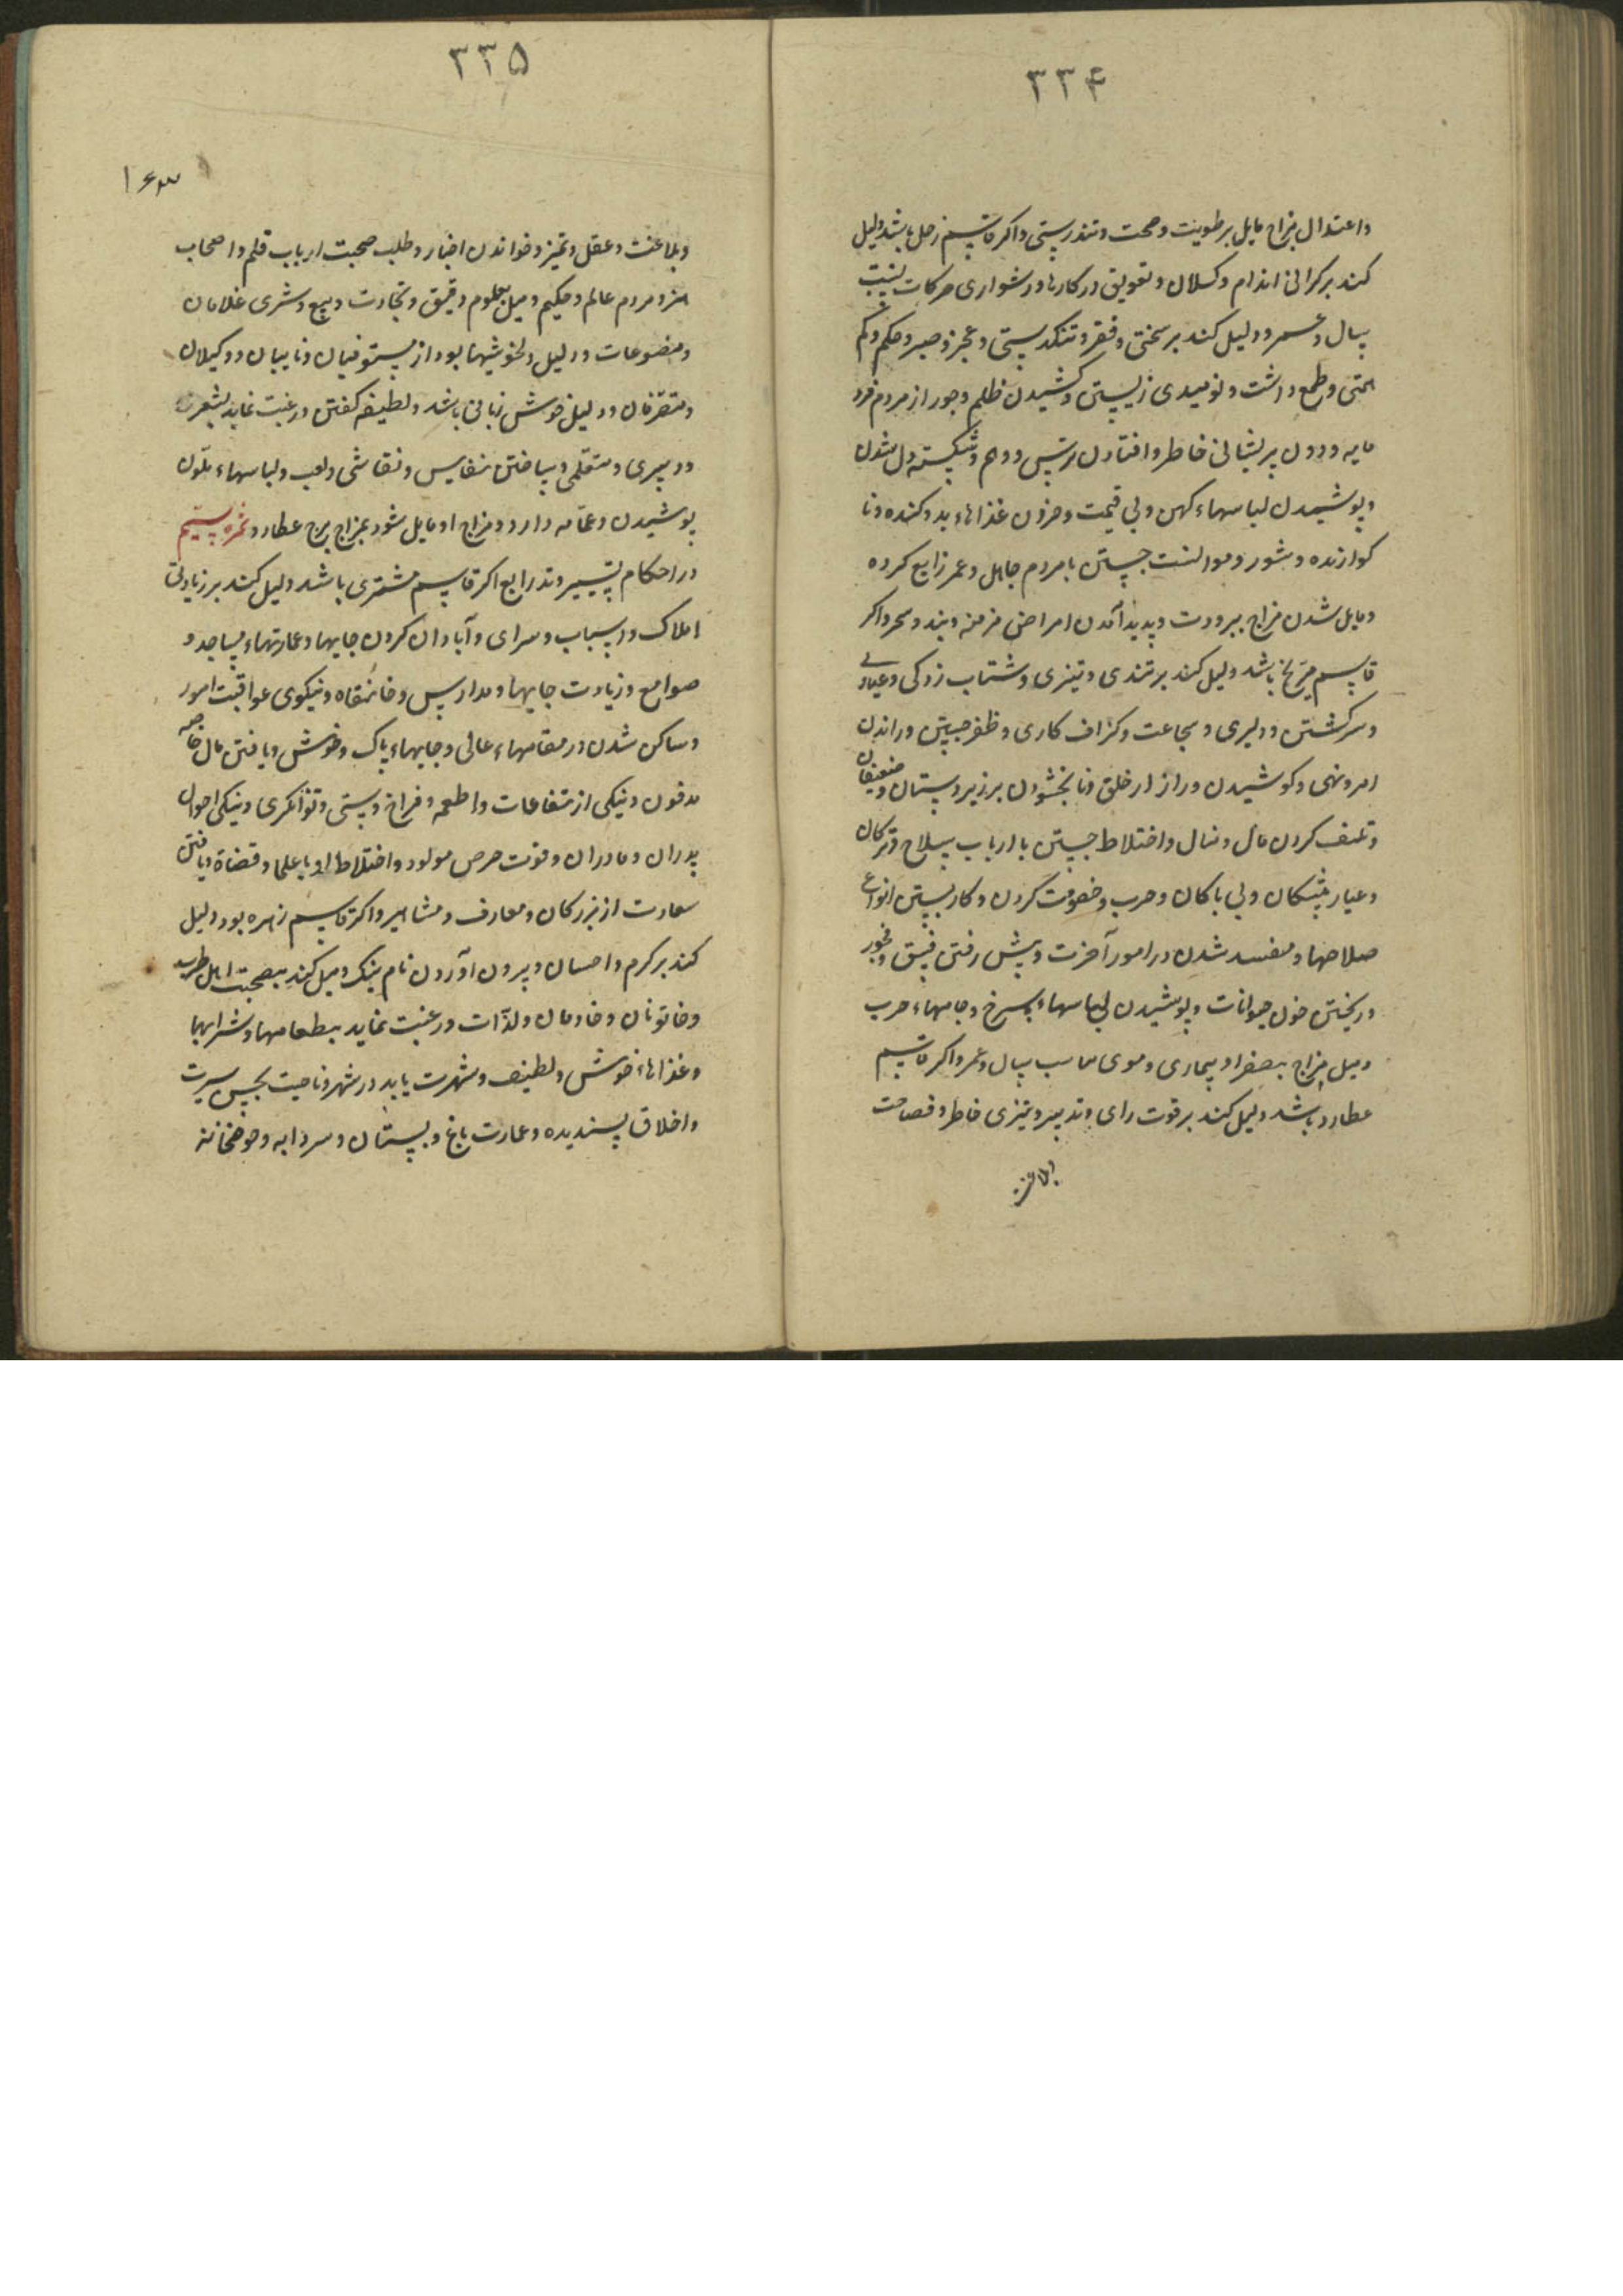 ۳۳۴
واعتدال مزاج مایل برطوبت وصحت وتندرستی واکر قاسم زحل باشد دلیل
کند بر کرانی اندام وکسلان وتعویق در کارها ودشواری حرکات بنسبت
سال وعمر ودلیل کند بر سختی وفقر وتنکدستی وعجز وصبر وحکم وکم
همتی وطمع داشت ونومیدی زیستن وکشیدن ظلم وجور از مردم فرو
مایه ودون پریشانی خاطر وافتادن ترس ووهم وشکسته دل شدن
وپوشیدن لباسهاء کهن وبی قیمت وخوردن غذاهاء بد وکنده ونا
کوارنده وشور وموانست جستن با مردم جاهل وعمر زایع کرده
ومایل شدن مزاج ببرودت وپدید آمدن امراض مزمنه وبند وسحر واکر
قاسم مریخ باشد دلیل کند بر تندی وتیزی وشتاب زدکی وعیاری
وسرکشتن ودلیری وشجاعت وکزاف کاری وظفر جستن وراندن
امر ونهی وکوشیدن در ازار خلق ونابخشودن بر زیردستان وضعیفان
وتلف کردن مال ومنال واختلاط جستن با ارباب سلاح وترکان
وعیار پیشکان وبی باکان وحرب وخصومت کردن وکار بستن انواع
صلاحها ومفسد شدن در امور آخرت وپیش رفتن فسق وفجور
وریختن خون حیوانات وپوشیدن لباسهاء سرخ وجامهاء حرب
ومیل مزاج بصفرا وبیماری وموی مناسب سال وعمر واکر قاسم
عطارد باشد دلیل کند بر قوت رای وتدبیر وتیزی خاطر وفصاحت
وبلاغت
۳۳۵
۱۶۳
وبلاغت وعقل وتمیز وخواندن اخبار وطلب صحبت ارباب قلم واصحاب
هنر ومردم عالم وحکیم ومیل بعلوم دقیق وتجارت وبیع وشری غلامان
ومصنوعات ودلیل دلخوشیها بود از مستوفیان ونایبان ووکیلان
ومتصرفان ودلیل خوش زبانی باشد ولطیفه کفتن ورغبت نماید بشعر
ودبیری ومتعلمی وساختن نفایس ونقاشی ولعب ولباسهاء ملون
پوشیدن وعمامه دارد ومزاج او مایل شود بمزاج برج عطارد نمره سیم
در احکام تسییر وتد رابع اکر قاسم مشتری باشد دلیل کند بر زیادتی
املاک واسباب وسرای وآبادان کردن جایها وعمارتهاء مساجد و
صوامع وزیادت جایها ومدارس وخانقاه ونیکوی عواقبت امور
وساکن شدن در مقامهاء عالی وجایهاء پاک وخوش ویافتن مال خاصه
مدفون ونیکی از منتفاعات واطعمه وفراخ دستی وتوانکری ونیکی احوال
پدران ومادران وقوت حرص مولود واختلاط او با علما وقضاة ویافتن
سعادت از بزرکان ومعارف ومشاهیر واکر قاسم زهره بود دلیل
کند بر کرم واحسان وبیرون آوردن نام نیک ومیل کند بصحبت اهل طرب
وخاتونان وخادمان ولذّات ورغبت نماید بطعامها وشرابها
وغذاهاء خوش ولطیف وشهرت یابد در شهر وناحیت بحسن سیرت
واخلاق پسندیده وعمارت باغ وبستان وسردابه وحوضخانه